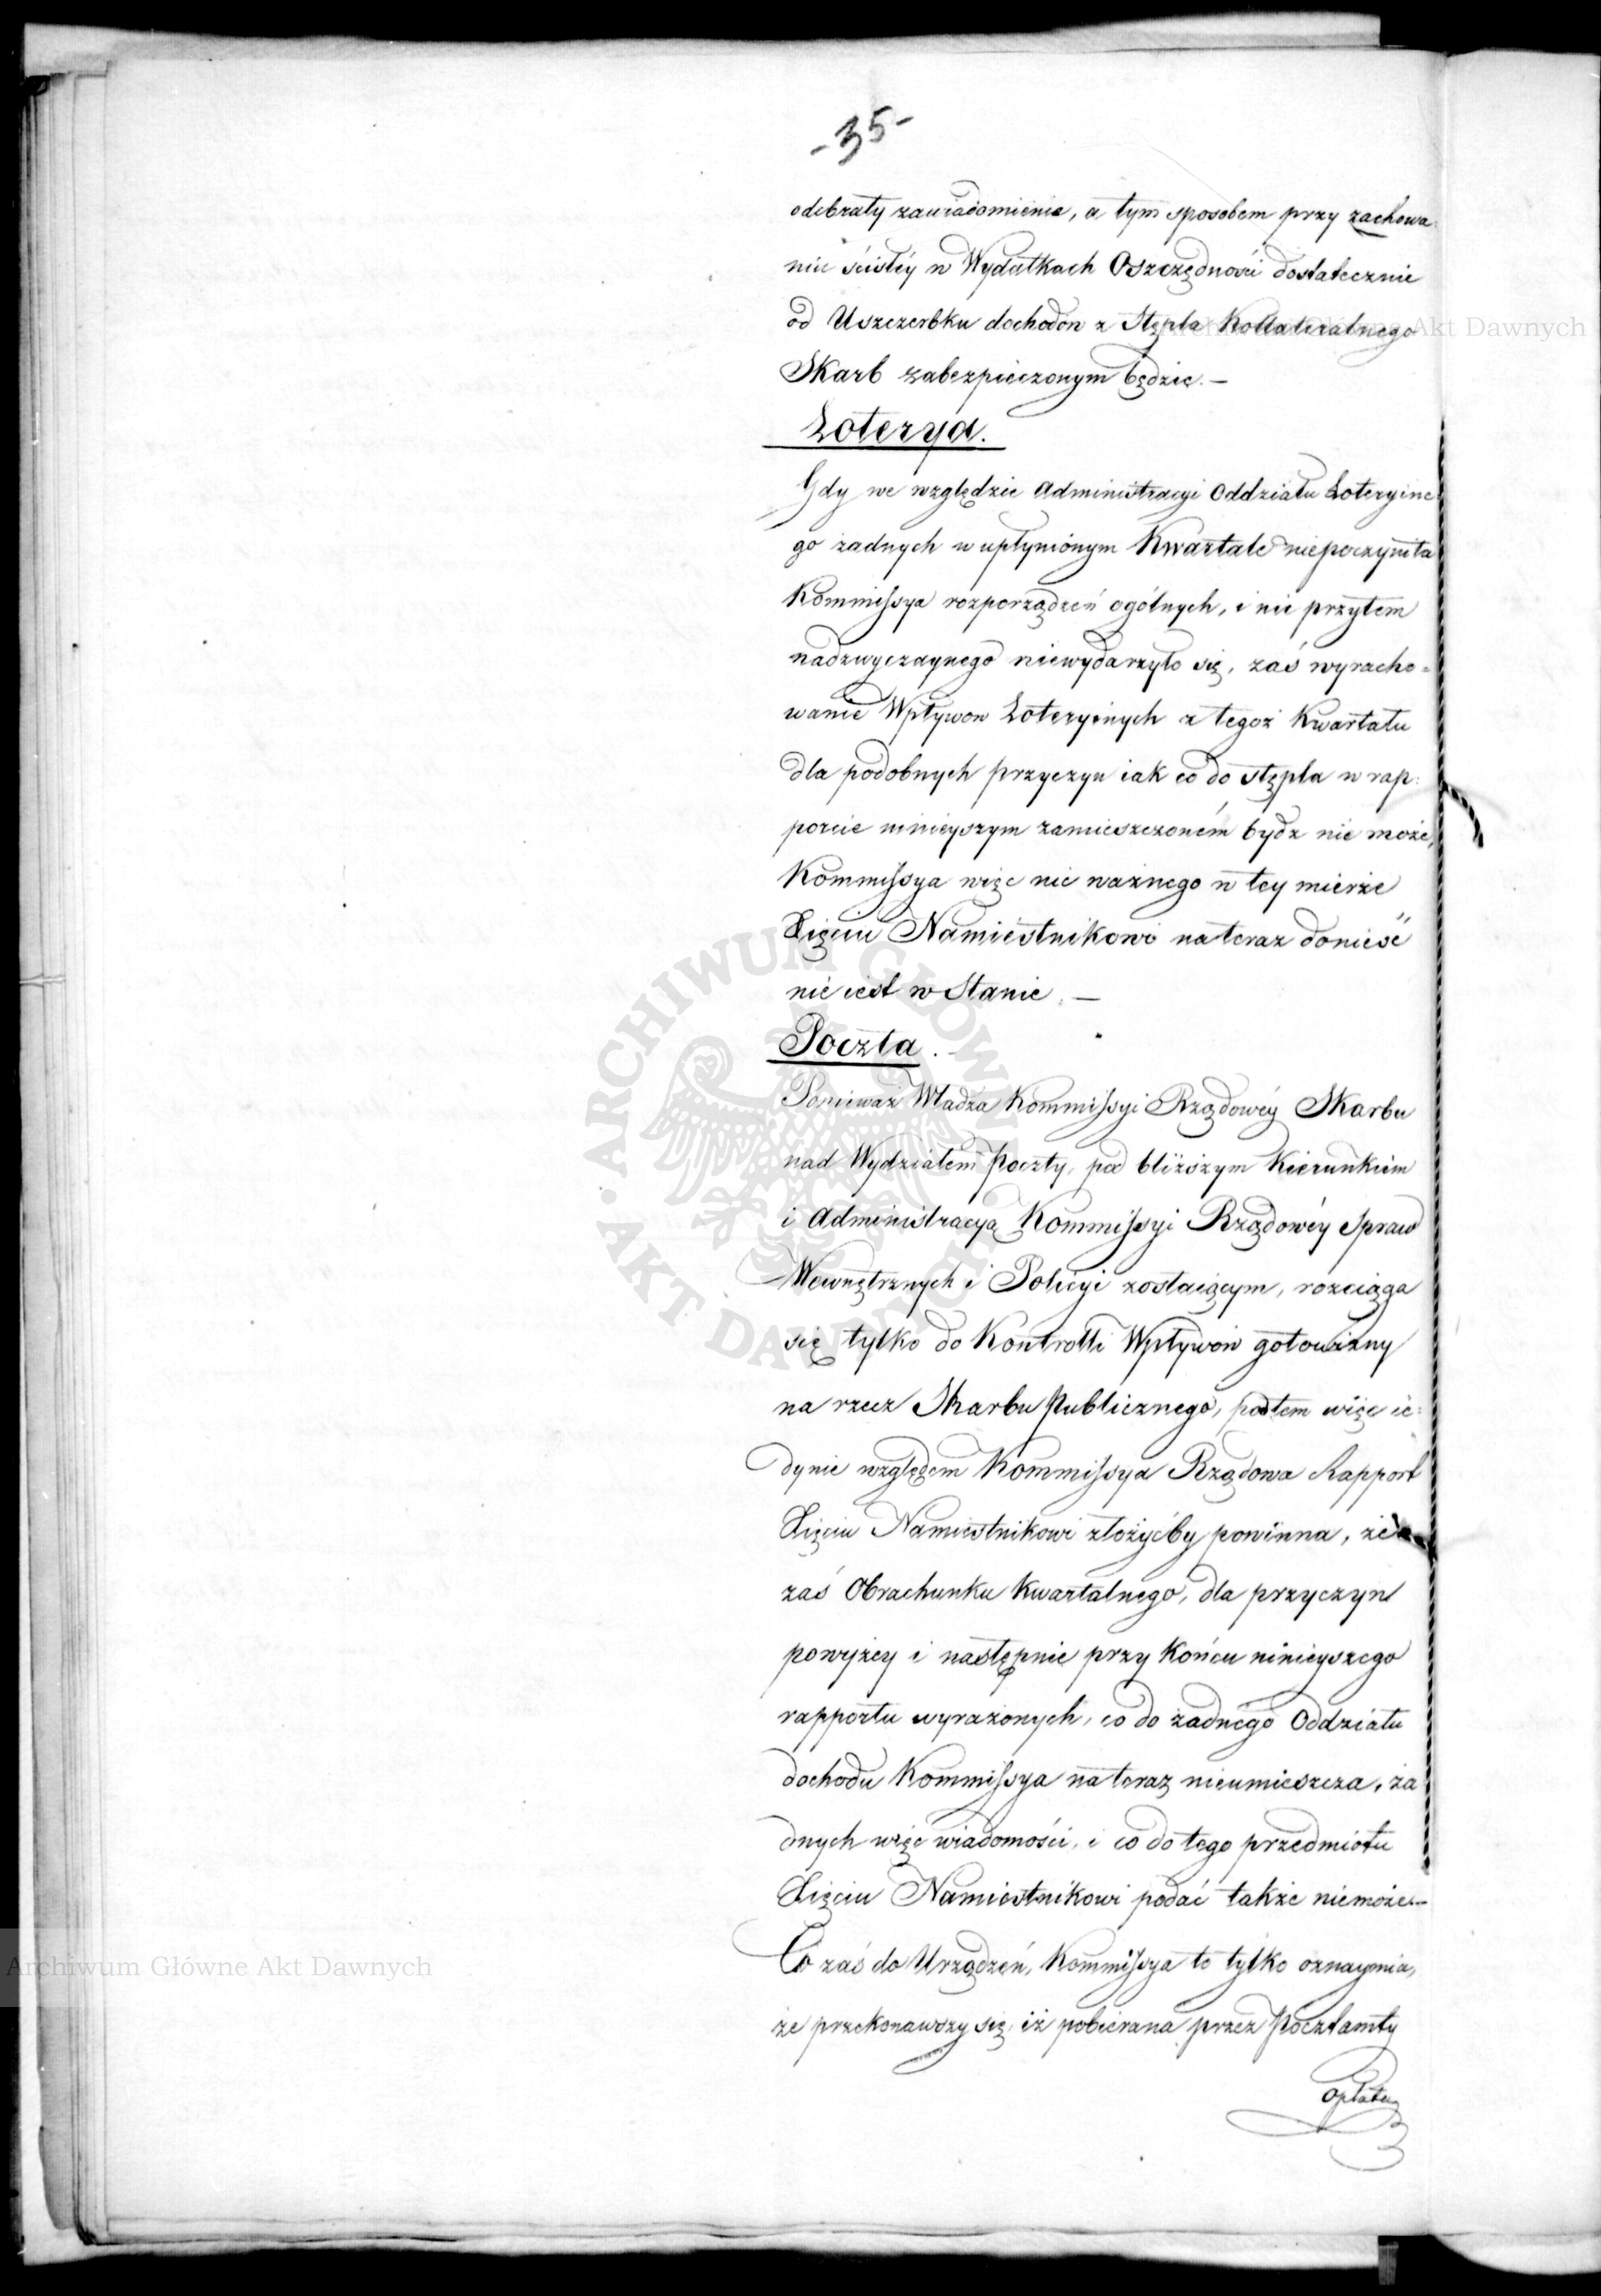 - 35 -
odebrały zawiadomienie, a tym sposobem przy zachowa-
niu ścisłéy w Wydatkach Oszczędności dostatecznie
od Uszczerbku dochodów z Stępla Kollateralnego
Skarb zabezpieczonym będzie. —
Loterya.
Gdy we względzie Administracyi Oddziału Loteryine
go żadnych w upłynionym Kwartale niepoczyniła
Kommissya rozporządzeń ogólnych, i nic przytem
nadzwyczaynego niewydarzyło się, zaś wyracho=
wanie Wpływow Loteryinych z tegoż Kwartału
dla podobnych przyczyn iak co do stępla w rap:
porcie ninieyszym zamieszczoném bydz nie może,
Kommissya więc nic ważnego w tey mierze
Xięciu Namiestnikowi na teraz donieść
nie iest w Stanie. —
Poczta.
Ponieważ Władza Kommissyi Rządowéy Skarbu
nad Wydziałem Poczty, pod bliższym Kierunkiem
i Administracyą Kommissyi Rządowéy Spraw
Wewnętrznych i Policyi zostaiącym, rozciąga
się tylko do Kontrolli Wpływów gotowizny
na rzecz Skarbu Publicznego, podtem więc ie:
dynie względem Kommissya Rządowa Rapport
Xięciu Namiestnikowi złożyćby powinna, że
zaś Obrachunku Kwartalnego, dla przyczyn
powyżey i następnie przy Końcu ninieyszego
rapportu wyrażonych, co do żadnego Oddziału
dochodu Kommissya na teraz nieumieszcza, ża
dnych więc wiadomości, i co do tego przedmiotu
Xięciu Namiestnikowi podać także niemoże. —
Co zaś do Urządzeń, Kommissya to tylko oznaymia,
że przekonawszy się, iż pobierana przez Pocztamty
opłata
Archiwum Główne Akt Dawnych
Archiwum Główne Akt Dawnych
ARCHIWUM GŁÓWNE AKT DAWNYCH